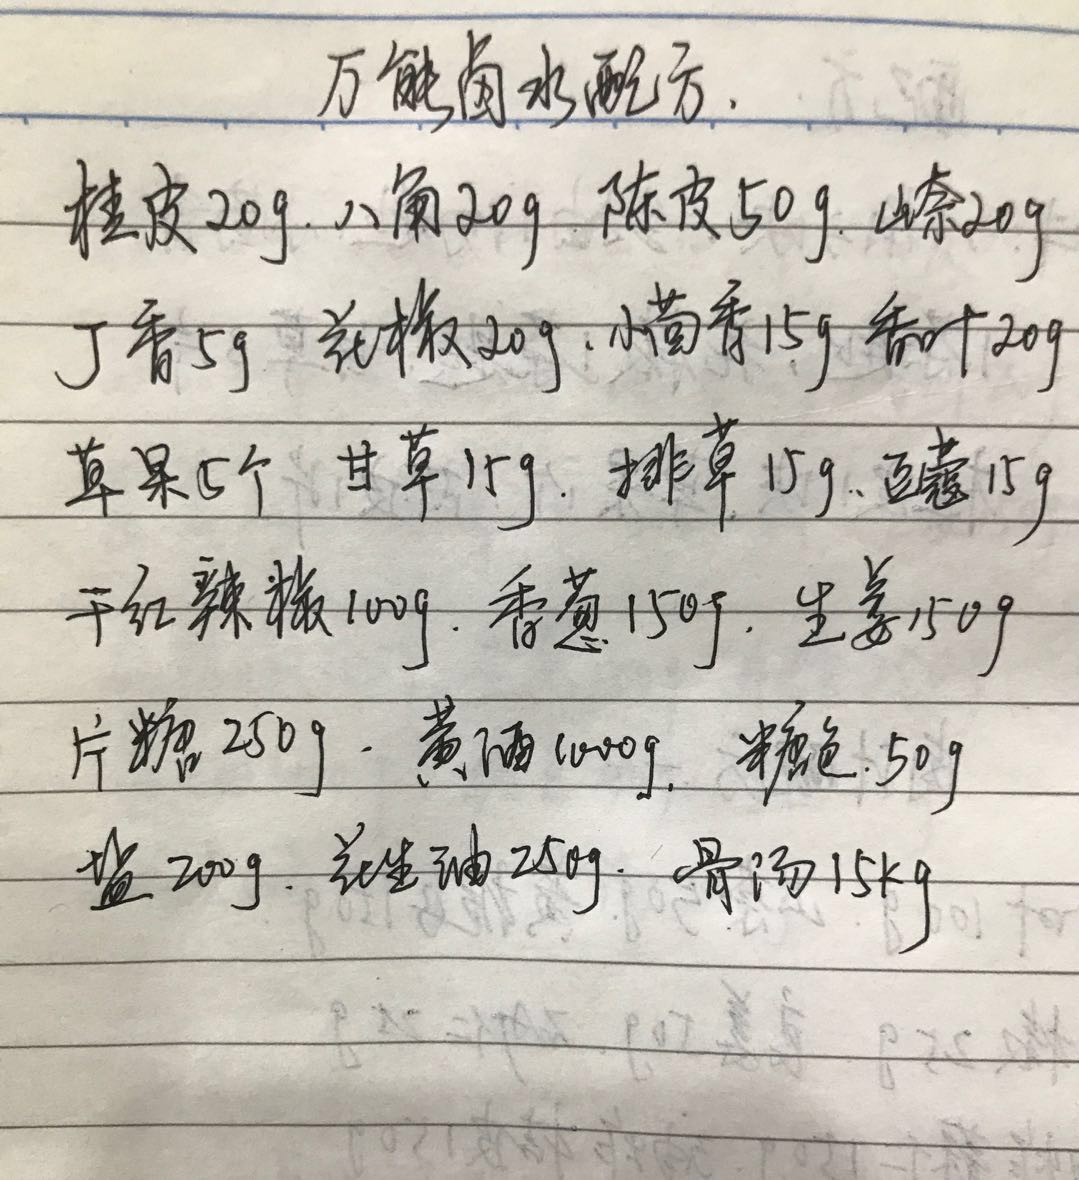 万能卤水配方.
桂皮20g. 八角20g 陈皮50g. 山奈20g
丁香5g 花椒20g. 小茴香15g 香叶20g
草果5个 甘草15g. 排草15g、豆蔻15g
干红辣椒100g. 香葱150g. 生姜150g
片糖250g. 黄酒1000g. 糖色.50g
盐200g. 花生油250g. 骨汤15kg